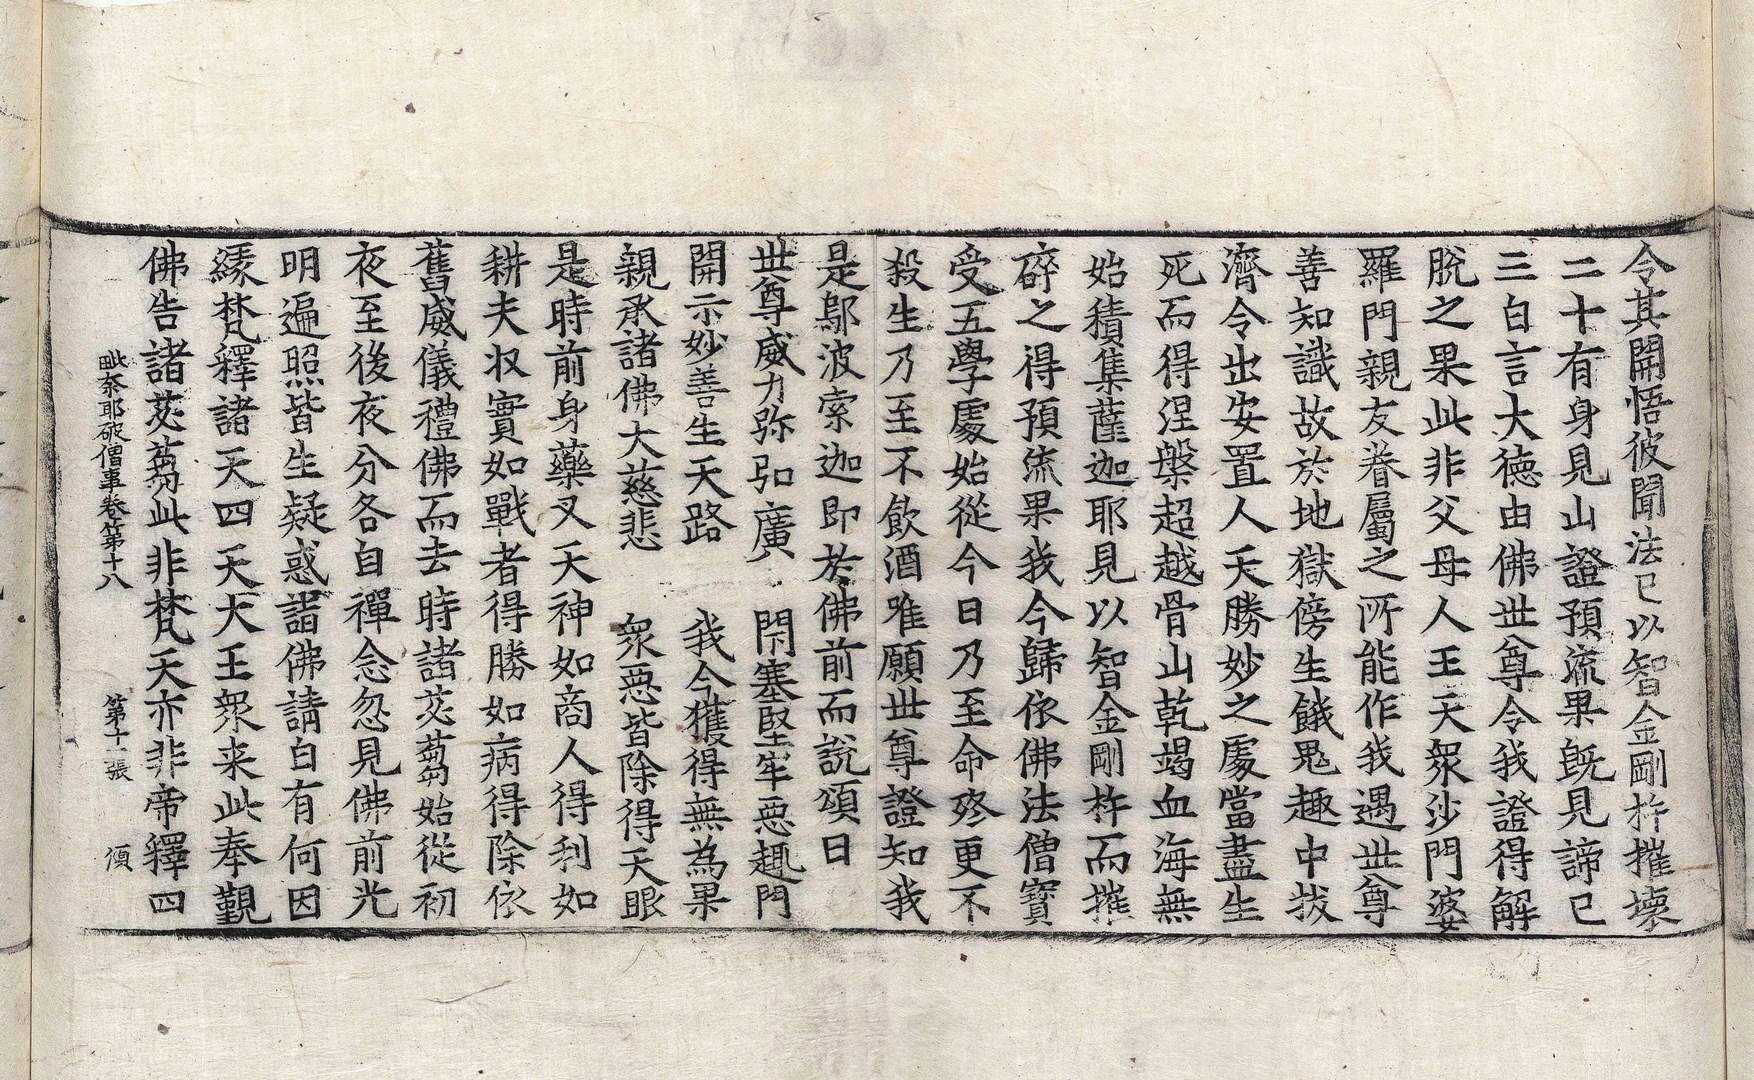 令其開悟彼聞法已以智金剛杵摧壞
二十有身見山證預流果旣見諦已
三白言大德由佛世尊令我證得解
脫之果此非父母人王天衆沙門婆
羅門親友眷屬之所能作我遇世尊
善知識故於地獄傍生餓鬼趣中拔
濟令出安置人天勝妙之處當盡生
死而得涅槃超越骨山乾竭血海無
始積集薩迦耶見以智金剛杵而摧
碎之得預流果我今歸依佛法僧寶
受五學處始從今日乃至命終更不
殺生乃至不飮酒唯願世尊證知我
是鄔波索迦即於佛前而說頌曰
世尊威力弥弘廣　閇塞堅牢惡趣門
開示妙善生天路　我今獲得無為果
親承諸佛大慈悲　衆惡皆除得天眼
是時前身藥叉天神如商人得利如
耕夫收實如戰者得勝如病得除依
舊威儀禮佛而去時諸苾蒭始從初
夜至後夜分各自禪念忽見佛前光
明遍照皆生疑惑詣佛請白有何因
緣梵釋諸天四天大王衆来此奉觀
佛告諸苾蒭此非梵天亦非帝釋四
毗奈耶破僧事卷第十八　第十一張　傾